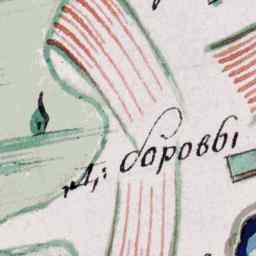 Д: боровы